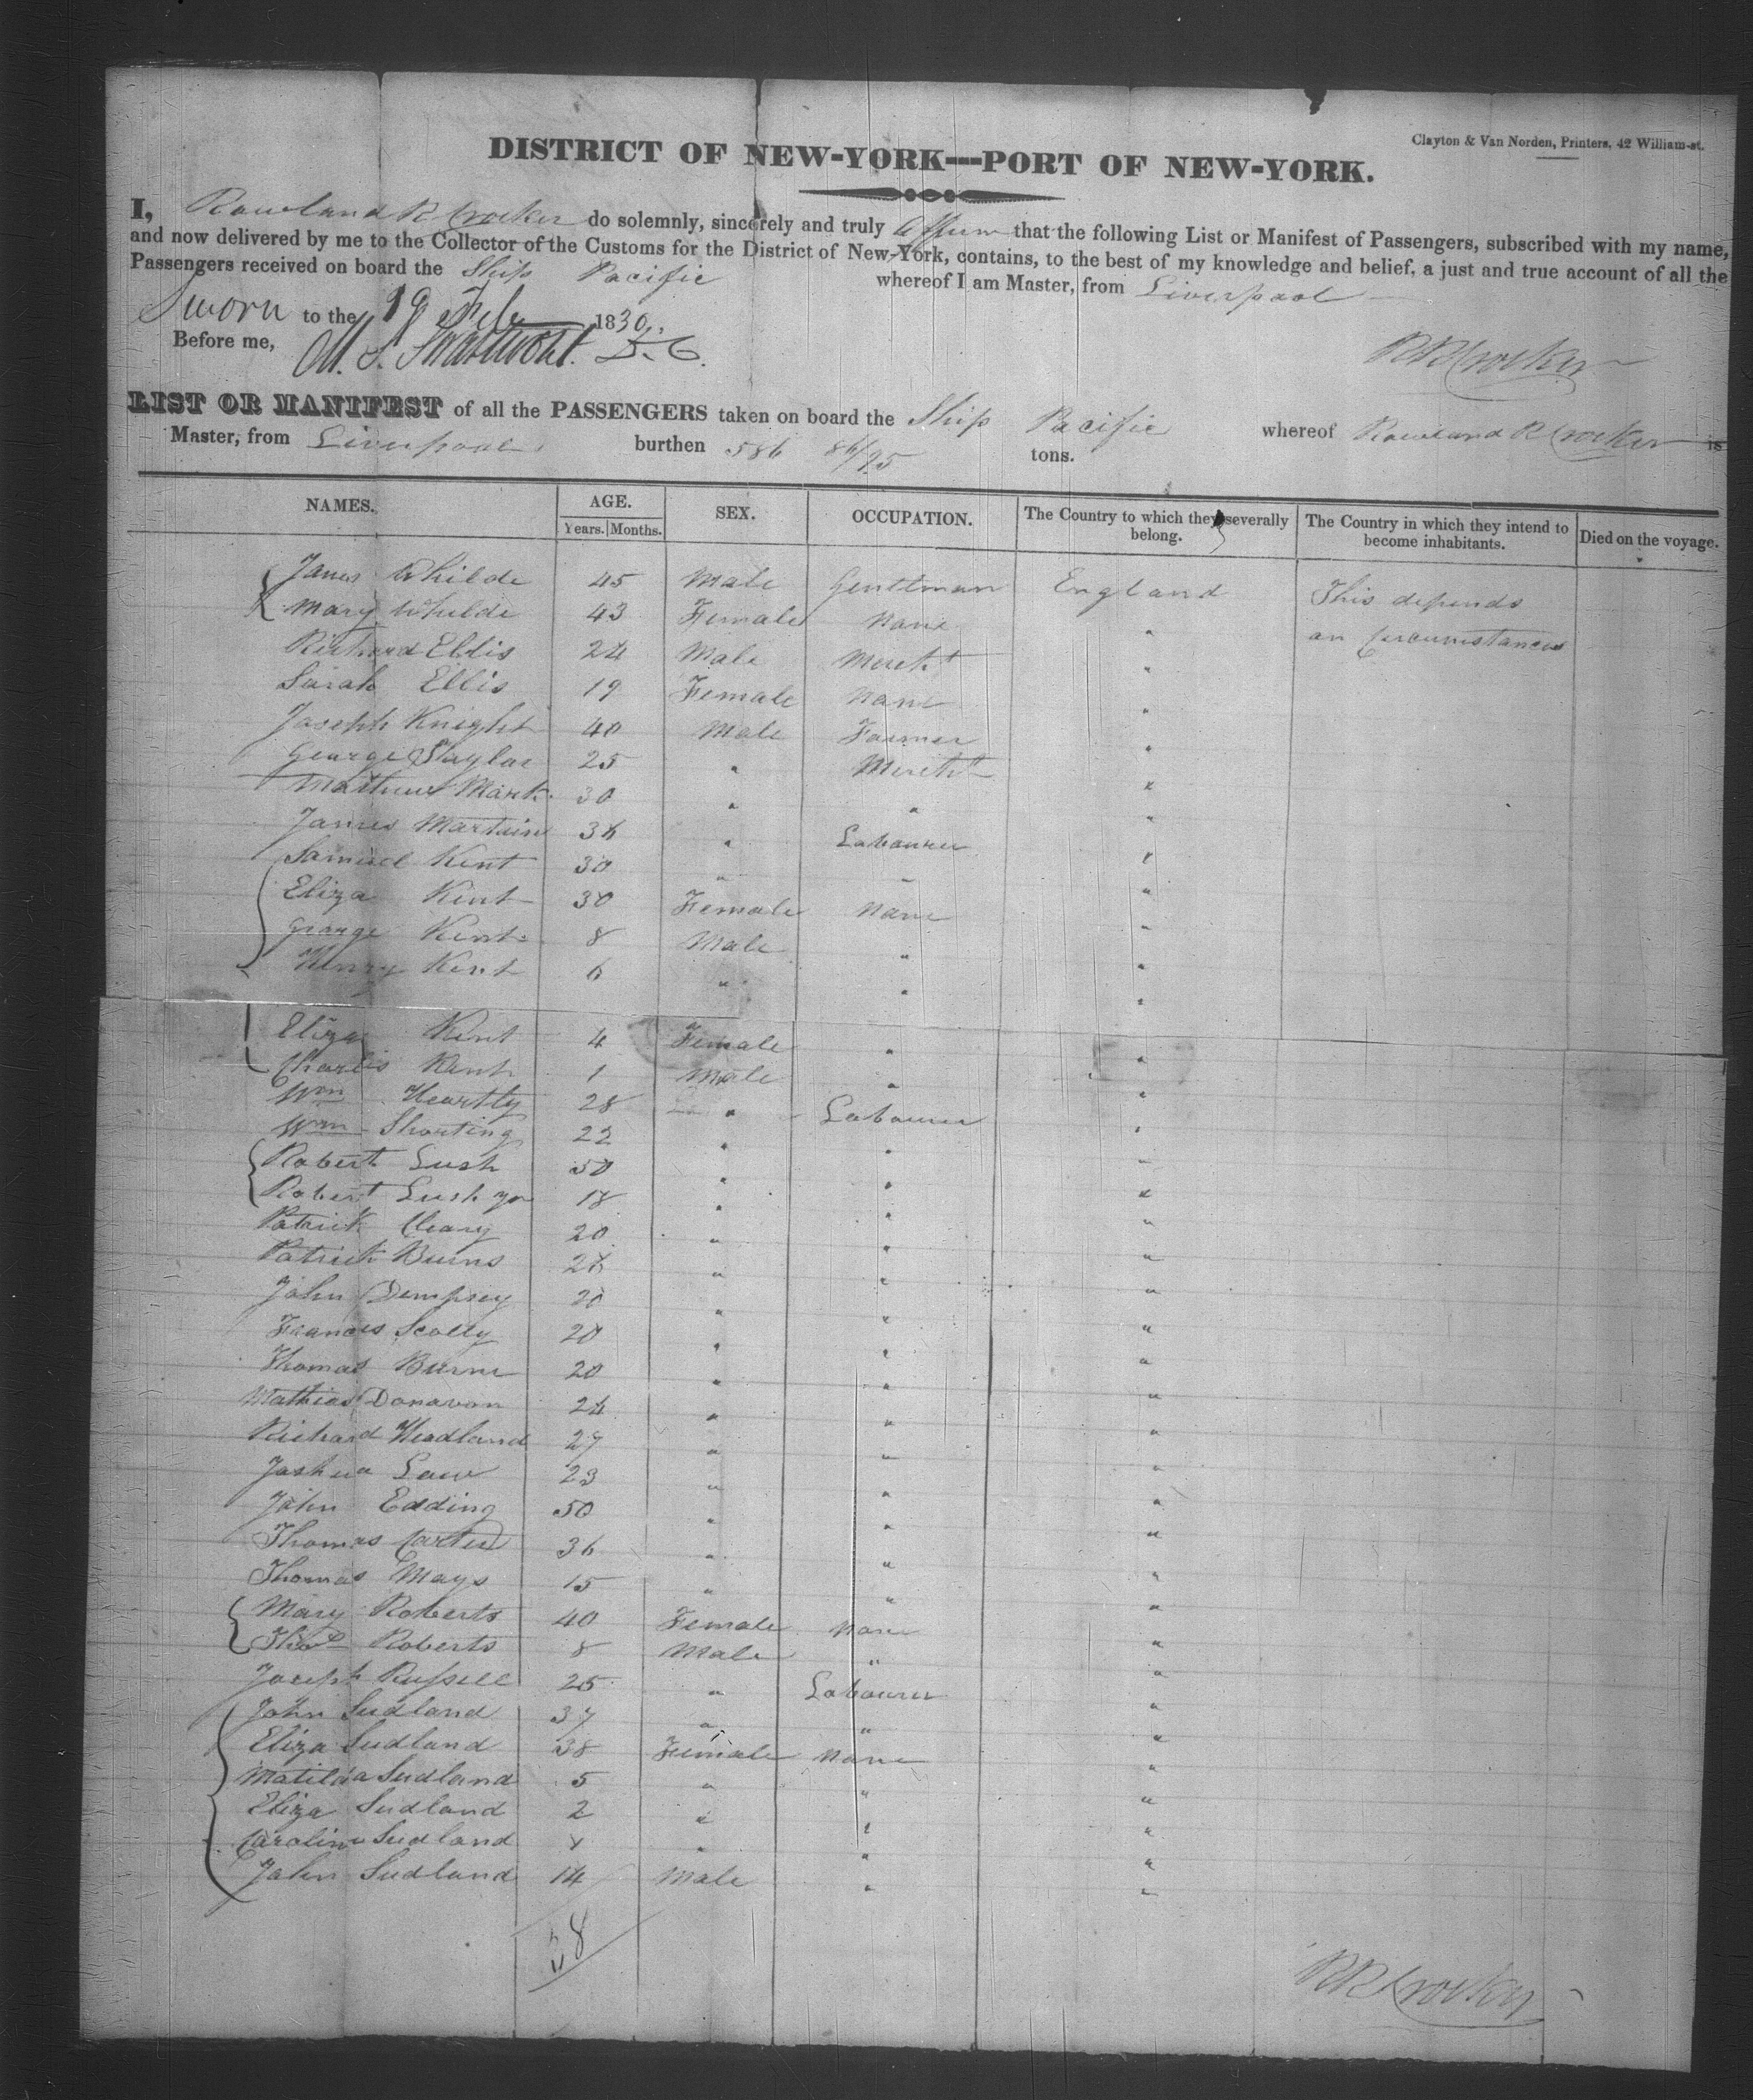 Clayton & Van Norden, Printers, 42 William-st.
DISTRICT OF NEW-YORK---PORT OF NEW-YORK.
I, Rowland R Crocker do solemnly, sincerely and truly affirm that the following List or Manifest of Passengers, subscribed with my name,
and now delivered by me to the Collector of the Customs for the District of New-York, contains, to the best of my knowledge and belief, a just and true account of all the
Passengers received on board the Ship Pacific whereof I am Master, from Liverpool
Sworn to the 19 Feb 1830.
Before me, M. S. Swartwout. D.C.
RRCrocker
LIST OR MANIFEST of all the PASSENGERS taken on board the Ship Pacific whereof Rowland R Crocker is
Master, from Liverpool burthen 586 86/95 tons.
NAMES. AGE. Years. Months. SEX. OCCUPATION. The Country to which they severally belong. The Country in which they intend to become inhabitants. Died on the voyage.
James Whilde 45 Male Gentleman England This depends
Mary Whilde 43 Female None " on Circumstances
Richard Ellis 24 Male Mercht "
Sarah Ellis 19 Female None "
Joseph Knight 40 Male Farmer "
George Saylor 25 " Mercht "
Matthew Mark 30 " " "
James Martain 34 " Labourer "
Samuel Kent 30 " " "
Eliza Kent 30 Female None "
George Kent 8 Male " "
Henry Kent 6 " " "
Eliza Kent 4 Female " "
Charles Kent 1 Male " "
Wm Heartly 28 " Labourer "
Wm Shorting 22 " " "
Robert Lush 50 " " "
Robert Lush Jr 18 " " "
Patrick Cleary 20 " " "
Patrick Burns 24 " " "
John Dempsey 20 " " "
Frances Scolly 20 " " "
Thomas Burne 20 " " "
Mathias Donavan 24 " " "
Richard Headland 27 " " "
Joshua Law 23 " " "
John Edding 50 " " "
Thomas Carter 36 " " "
Thomas Mays 15 " " "
Mary Roberts 40 Female None "
Thos Roberts 8 Male " "
Joseph Russell 25 " Labourer "
John Sudland 37 " " "
Eliza Sudland 38 Female None "
Matilda Sudland 5 " " "
Eliza Sudland 2 " " "
Caroline Sudland " " "
John Sudland 14 Male " "
38
RRCrocker